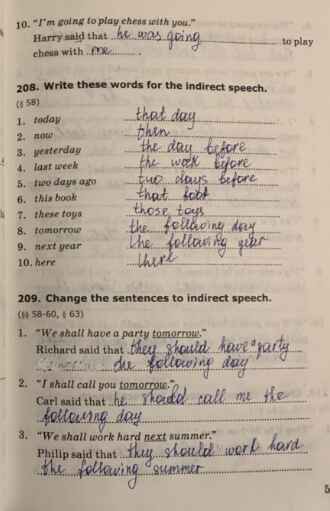 10. "I'm going to play chess with you."
Harry said that he was going to play
chess with me.
208. Write these words for the indirect speech.
(§ 58)
1. today that day
2. now then
3. yesterday the day before
4. last week the week before
5. two days ago two days before
6. this book that book
7. these toys those toys
8. tomorrow the following day
9. next year the following year
10. here there
209. Change the sentences to indirect speech.
(§§ 58-60, § 63)
1. "We shall have a party tomorrow."
Richard said that they should have a party
the following day
2. "I shall call you tomorrow."
Carl said that he should call me the
following day
3. "We shall work hard next summer."
Philip said that they should work hard
the following summer